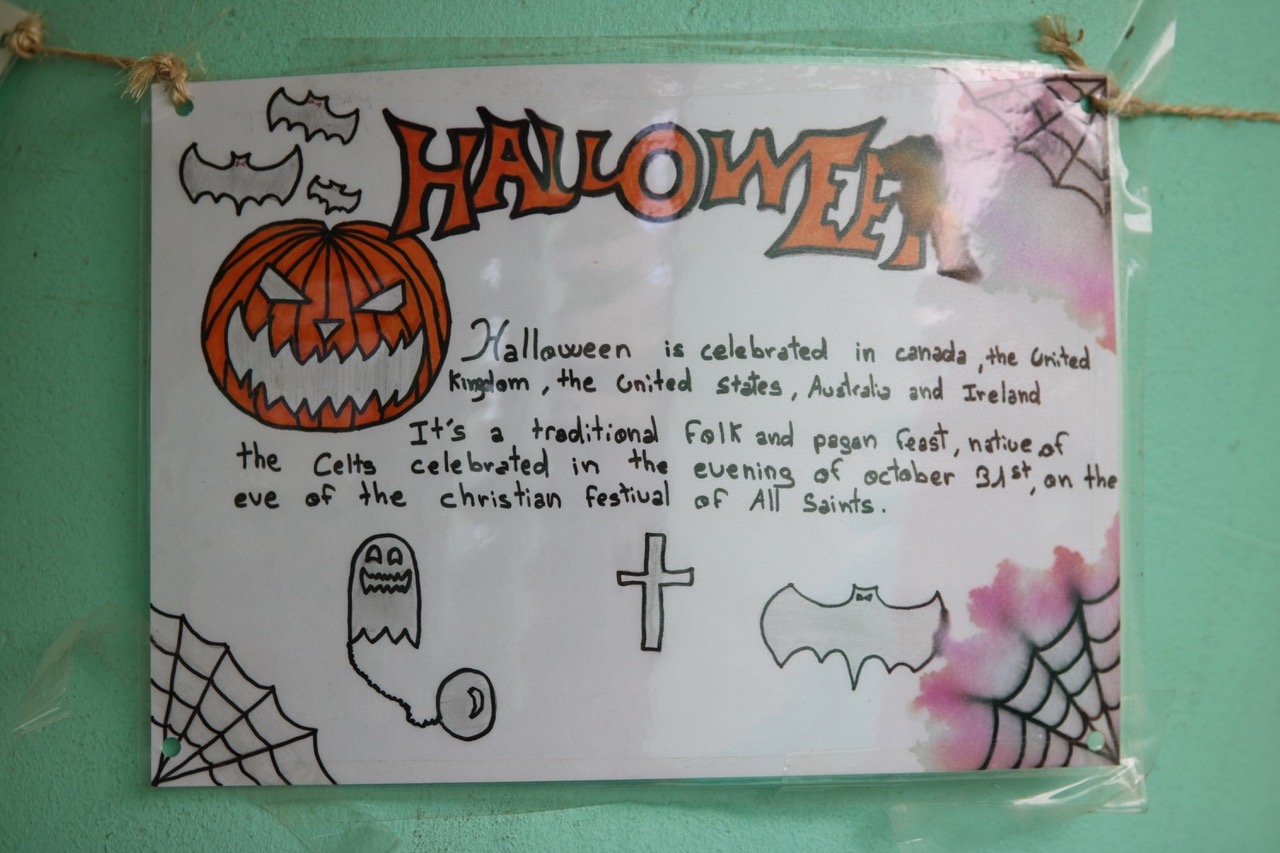 HALLOWEEN
Halloween is celebrated in canada, the United
Kingdom, the United states, Australia and Ireland
It's a traditional Folk and pagan feast, native of
the Celts celebrated in the evening of october 31st, on the
eve of the christian festival of All Saints.